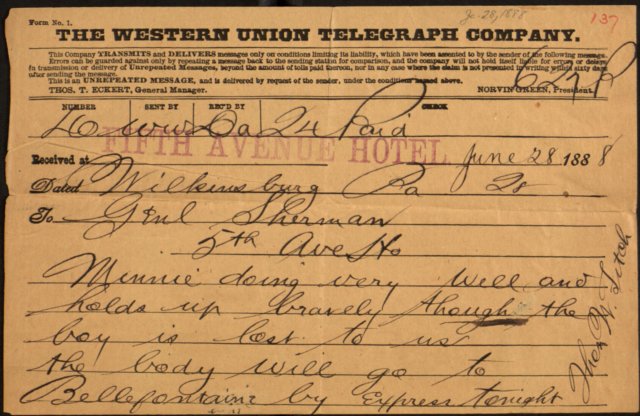 Je. 28, 1888
137
Form No. 1.
THE WESTERN UNION TELEGRAPH COMPANY.
This Company TRANSMITS and DELIVERS messages only on conditions limiting its liability, which have been assented to by the sender of the following message.
Errors can be guarded against only by repeating a message back to the sending station for comparison, and the company will not hold itself liable for errors or delays
in transmission or delivery of Unrepeated Messages, beyond the amount of tolls paid thereon, nor in any case where the claim is not presented in writing within sixty days
after sending the message.
This is an UNREPEATED MESSAGE, and is delivered by request of the sender, under the conditions named above.
THOS. T. ECKERT, General Manager. NORVIN GREEN, President.
NUMBER SENT BY REC'D BY CHECK
24 Paid
FIFTH AVENUE HOTEL
Received at June 28 1888
Dated Wilkinsburg Pa 28
To Genl Sherman
5th Ave Ho
Minnie doing very well and
holds up bravely though the
boy is lost to us
the body will go to
Bellefontaine by Express tonight
Thos W. Fitch